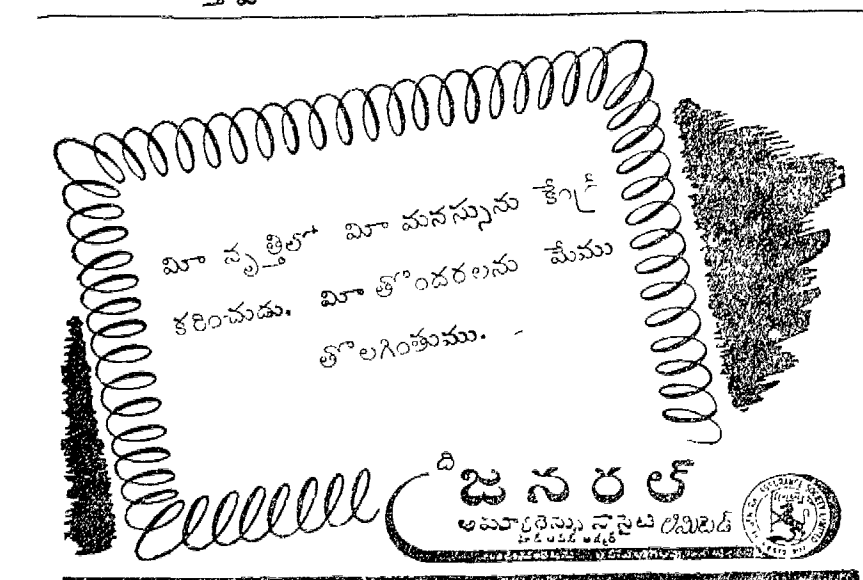 మీ వృత్తిలో మీ మనస్సును కేంద్రీ
కరించుడు. మీ తొందరలను మేము
తొలగింతుము.
ది
జనరల్
అష్యూరెన్సు సొసైటి లిమిటెడ్